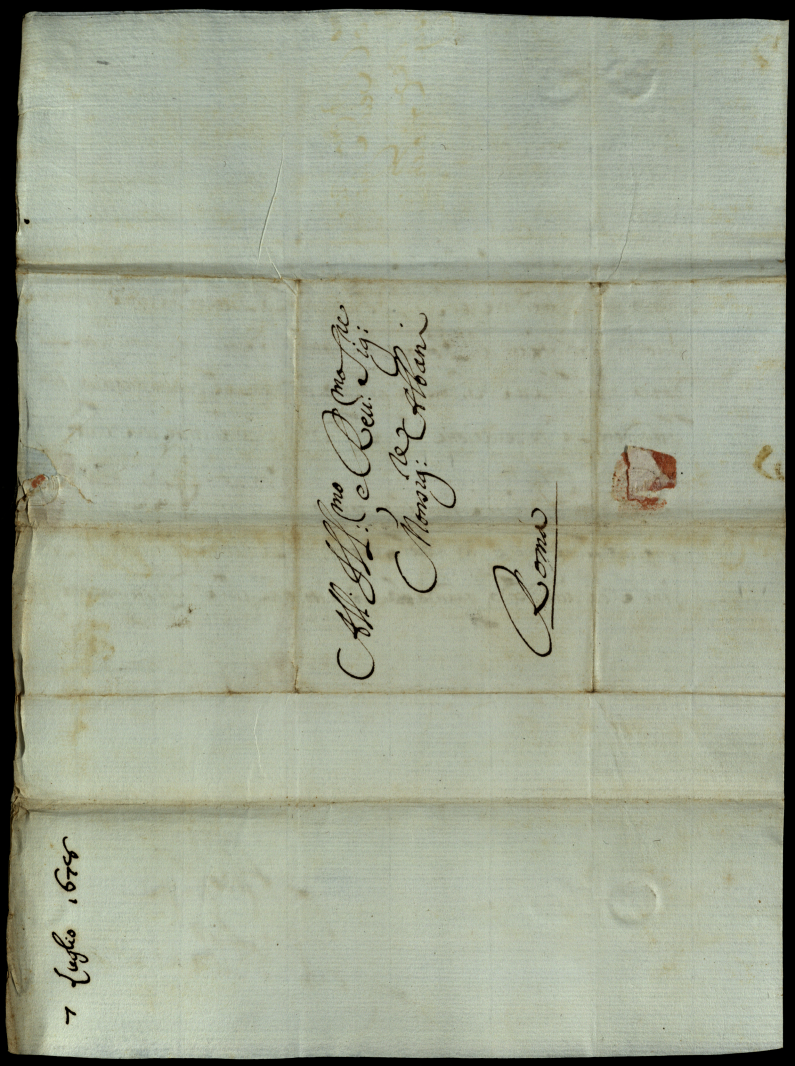 All: Ill:mo e Reu:mo Sig:re
Monsig:re Albani
Roma
7 Luglio 1678